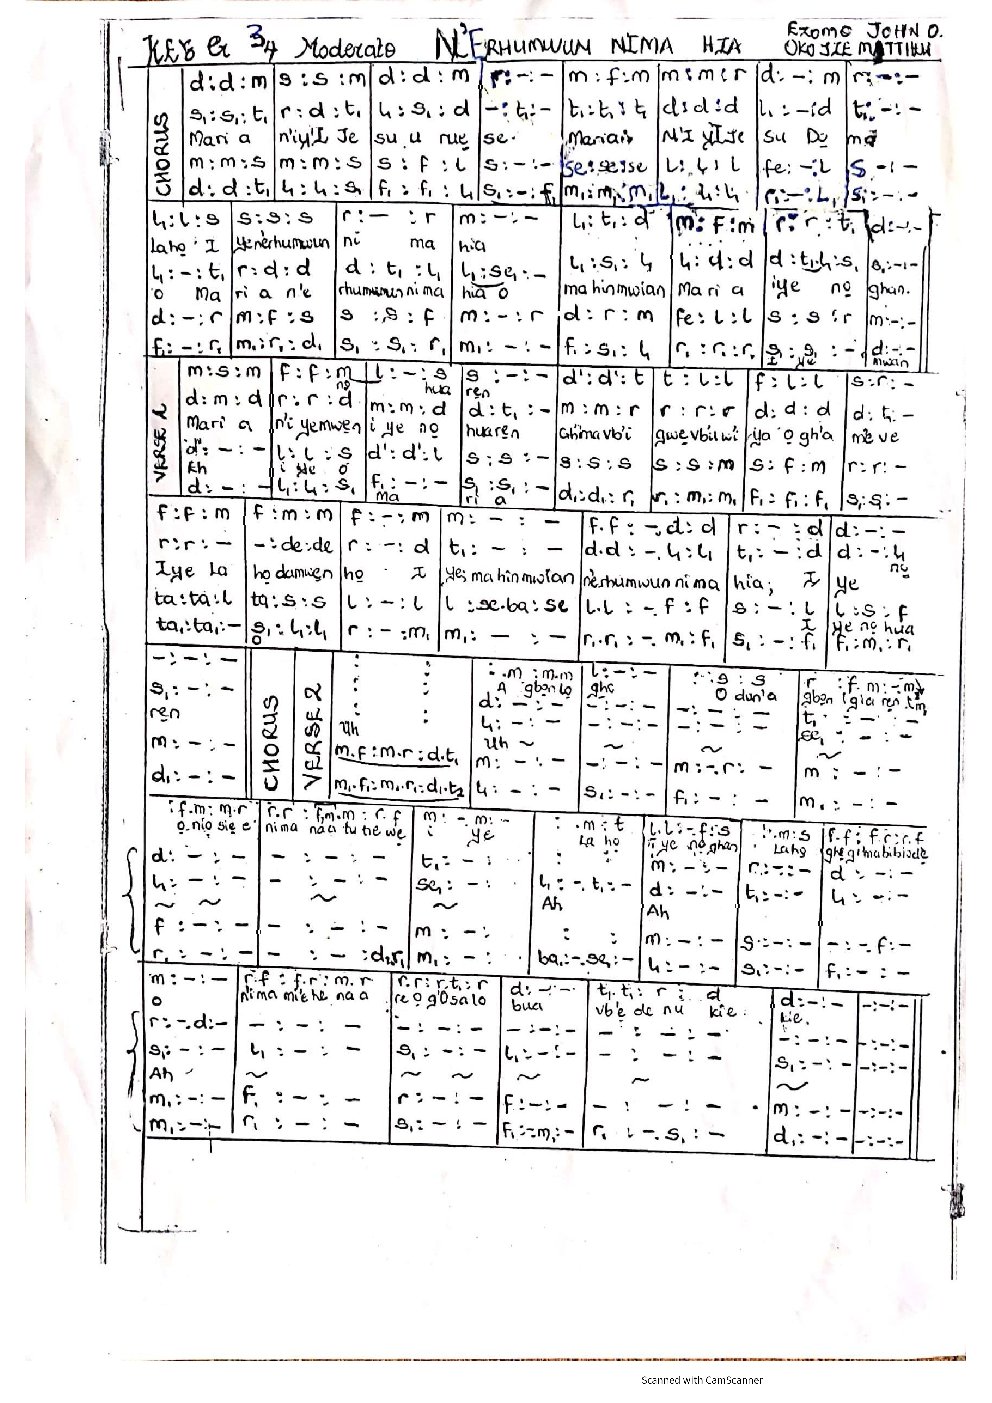 KEY G 3/4 Moderato N'ERHUMWUN NIMA HIA EZOMO JOHN O.
OKOJIE MATTHEW
CHORUS
d:d:m | s:s:m | d:d:m | r:-:- | m:f:m | m:m:r | d:-:m | r:-:-
s₁:s₁:t₁ | r:d:t₁ | l₁:s₁:d | -:t₁:- | t₁:t₁:t | d:d:d | l₁:-:d | t₁:-:-
Mari a n'iyi Je su u rue se. Maria N'I yi Je su Do ma
m:m:s | m:m:s | s:f:l | s:-:- | se:se:se | l:l:l | fe:-:l | s:-:-
d:d:t₁ | l₁:l₁:s₁ | f₁:f₁:l₁ | s₁:-:f₁ | m₁:m₁:m₁ | l₁:l₁:l₁ | r₁:-:l₁ | s₁:-:-
l₁:l:s | s:s:s | r:-:r | m:-:- | l₁:t₁:d | m:f:m | r:r:t₁ | d:-:-
Laho I yenerhumwun ni ma hia
l₁:-:t₁ | r:d:d | d:t₁:l₁ | l₁:se₁:- | l₁:s₁:l₁ | l₁:d:d | d:t₁l₁:s₁ | s₁:-:-
O Ma ri a n'e rhumwun ni ma hia O ma hin mwian Mari a iye nọ ghan.
d:-:r | m:f:s | s:s:f | m:-:r | d:r:m | fe:l:l | s:s:r | m:-:-
f₁:-:r₁ | m₁:r₁:d₁ | s₁:s₁:r₁ | m₁:-:- | f₁:s₁:l₁ | r₁:r₁:r₁ | s₁:s₁:- | d:-:-
I ye mwan
VERSE 1
m:s:m | f:f:m | l:-:s | s:-:- | d':d':t | t:l:l | f:l:l | s:r:-
nọ hua ren
d:m:d | r:r:d | m:m:d | d:t₁:- | m:m:r | r:r:r | d:d:d | d:t₁:-
Mari a n'i yemwen i ye nọ huaren Ghimavb'i gwevbiwi ya ọ gh'a me ve
d':-:- | l:l:s | d':d':l | s:s:- | s:s:s | s:s:m | s:f:m | r:r:-
Eh i ye ọ
d:-:- | l₁:l₁:s₁ | f₁:-:- | s₁:s₁:- | d₁:d₁:r₁ | r₁:m₁:m₁ | f₁:f₁:f₁ | s₁:s₁:-
ma ri a
f:f:m | f:m:m | f:-:m | m:-:- | f.f:-.d:d | r:-:d | d:-:-
r:r:- | -:de:de | r:-:d | t₁:-:- | d.d:-.l₁:l₁ | t₁:-:d | d:-:l₁
I ye la họ damwen họ I yei mahinmwian n'erhumwun ni ma hia; I ye nọ
ta:ta:l | ta:s:s | l:-:l | l:se.ba:se | l.l:-.f:f | s:-:l | l:s:f
I ye nọ hua
ta₁:ta₁:- | s₁:l₁:l₁ | r:-:m₁ | m₁:-:- | r₁.r₁:-.m₁:f₁ | s₁:-:f₁ | f₁:m₁:r₁
CHORUS VERSE 2
-:-:- | : : | :.m:m.m | l:-:- | :s:s | r:f.m:-.m
A gbọn lọ ghe O dun'a gbọn
s₁:-:- | : : | d:-:- | -:-:- | -:-:- | t₁:-:-
ren
l₁:-:- | -:-:- | -:-:- | se₁:-:-
Uh Uh ~ ~ ~ ~
m:-:- | m.f:m.r:d.t₁ | m:-:- | -:-:- | m:-.r:- | m:-:-
d₁:-:- | m₁.f₁:m₁.r₁:d₁.t₂ | l₁:-:- | s₁:-:- | f₁:-:- | m₁:-:-
:f.m:m.r | r.r:f.m.m:r.f | m:-.m:- | :.m:t | l.l:-.f:s | :.m:s | f.f:f.r:r.f
i ye La họ i ye nọ ghan Laho
d:-:- | -:-:- | t₁:-:- | : : | m:-:- | r:-:- | d:-:-
l₁:-:- | -:-:- | se₁:-:- | l₁:-.t₁:- | d:-:- | t₁:-:- | l₁:-:-
~ ~ ~ ~ Ah Ah
f:-:- | -:-:- | m:-:- | : : | m:-:- | s:-:- | -:-.f:-
r₁:-:- | -:-:d₁.r₁ | m₁:-:- | ba₁:-.se₁:- | l₁:-:- | s₁:-:- | f₁:-:-
m:-:- | r.f:f.r:m.r | r.r:r.t₁:r | d:-:- | t₁.t₁:r:d | d:-:- | -:-:-
O bua vb'e de nu kie. kie.
r:-.d:- | -:-:- | -:-:- | -:-:- | -:-:- | -:-:- | -:-:-
s₁:-:- | l₁:-:- | s₁:-:- | l₁:-:- | -:-:- | s₁:-:- | -:-:-
Ah ~ ~ ~ ~ ~ ~ ~
m₁:-:- | f₁:-:- | r:-:- | f:-:- | -:-:- | m:-:- | -:-:-
m₁:-:- | r₁:-:- | s₁:-:- | f₁:-:m₁:- | r₁:-.s₁:- | d₁:-:- | -:-:-
Scanned with CamScanner